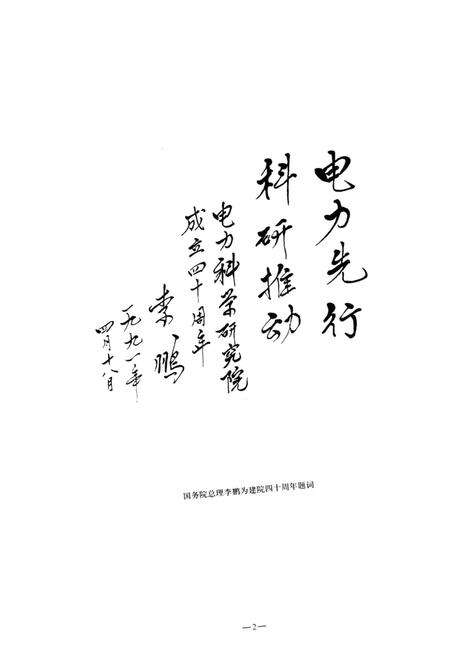 电力先行
科研推动
电力科学研究院
成立四十周年
李鹏
一九九一年
四月十八日
国务院总理李鹏为建院四十周年题词
—2—